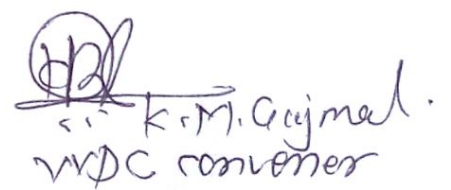 K.M. Gajmal.
VVDC convener